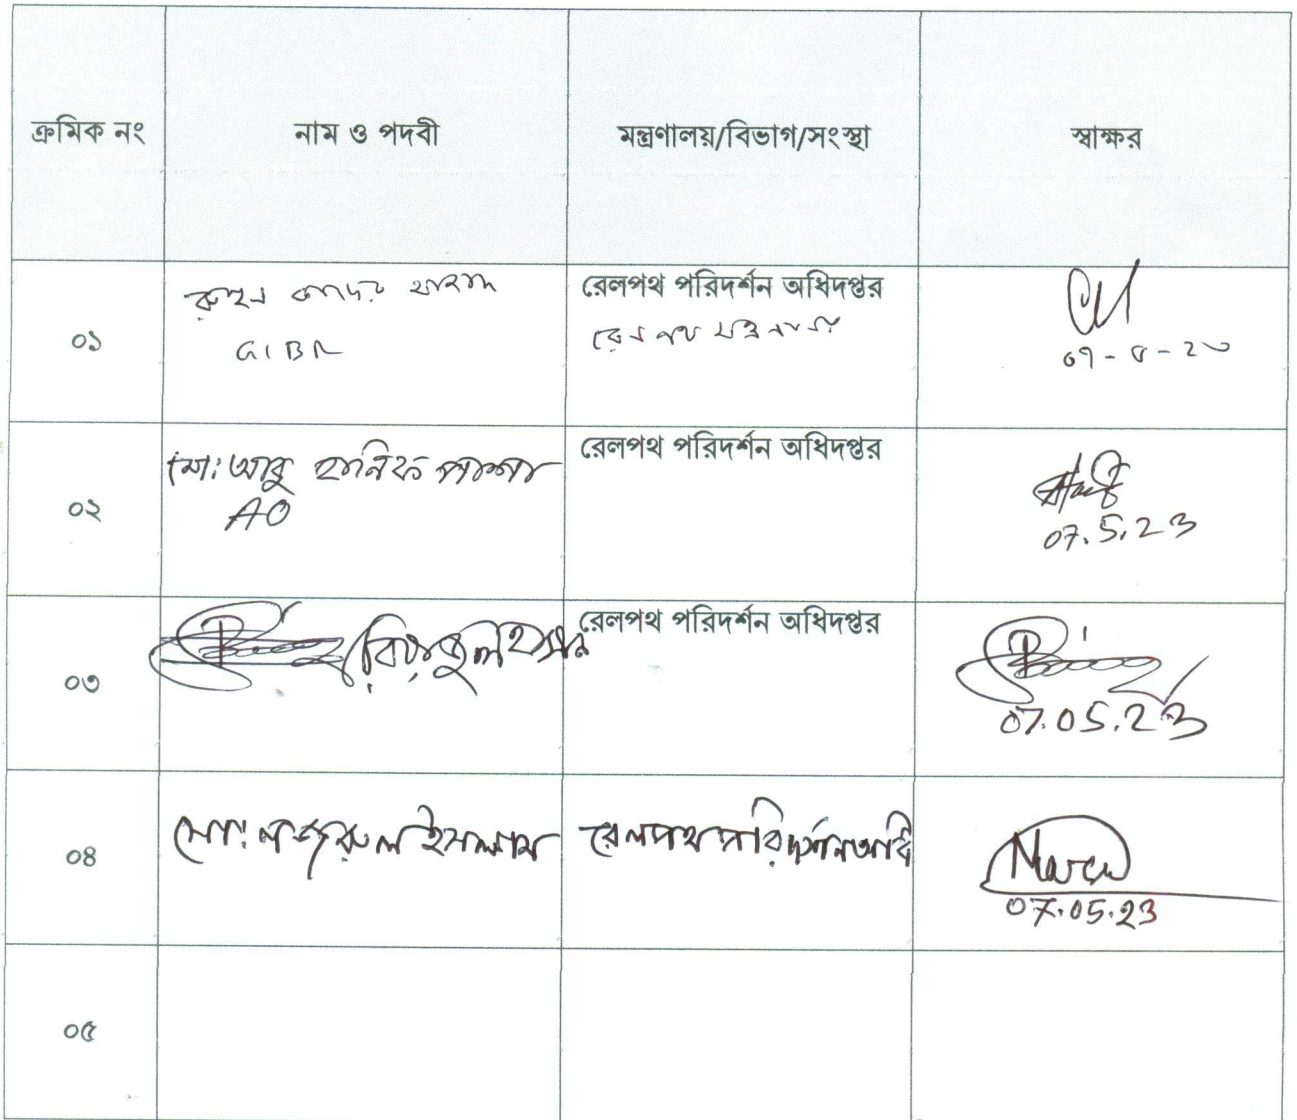 ক্রমিক নং নাম ও পদবী মন্ত্রণালয়/বিভাগ/সংস্থা স্বাক্ষর
০১ রুহুল কাদের আজাদ রেলপথ পরিদর্শন অধিদপ্তর
GIBR রেলপথ মন্ত্রণালয় ০৭-৫-২৩
০২ মো: আবু হানিফ পাশা রেলপথ পরিদর্শন অধিদপ্তর
AO 07.5.23
০৩ রেলপথ পরিদর্শন অধিদপ্তর
07.05.23
০৪ মো: নজরুল ইসলাম রেলপথ পরিদর্শন অধি
07.05.23
০৫